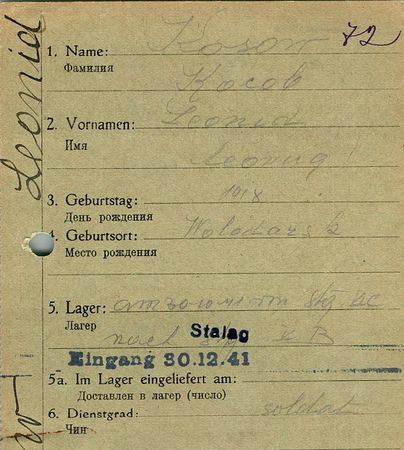 72
1. Name: Kosow
Фамилия Косов
2. Vornamen: Leonid
Имя Леонид
3. Geburtstag: 1918
День рождения
4. Geburtsort: Wolodarsk
Место рождения
5. Lager:
Лагер nach Stalag
Eingang 30.12.41
5a. Im Lager eingeliefert am:
Доставлен в лагер (число)
6. Dienstgrad: soldat
Чин
Leonid